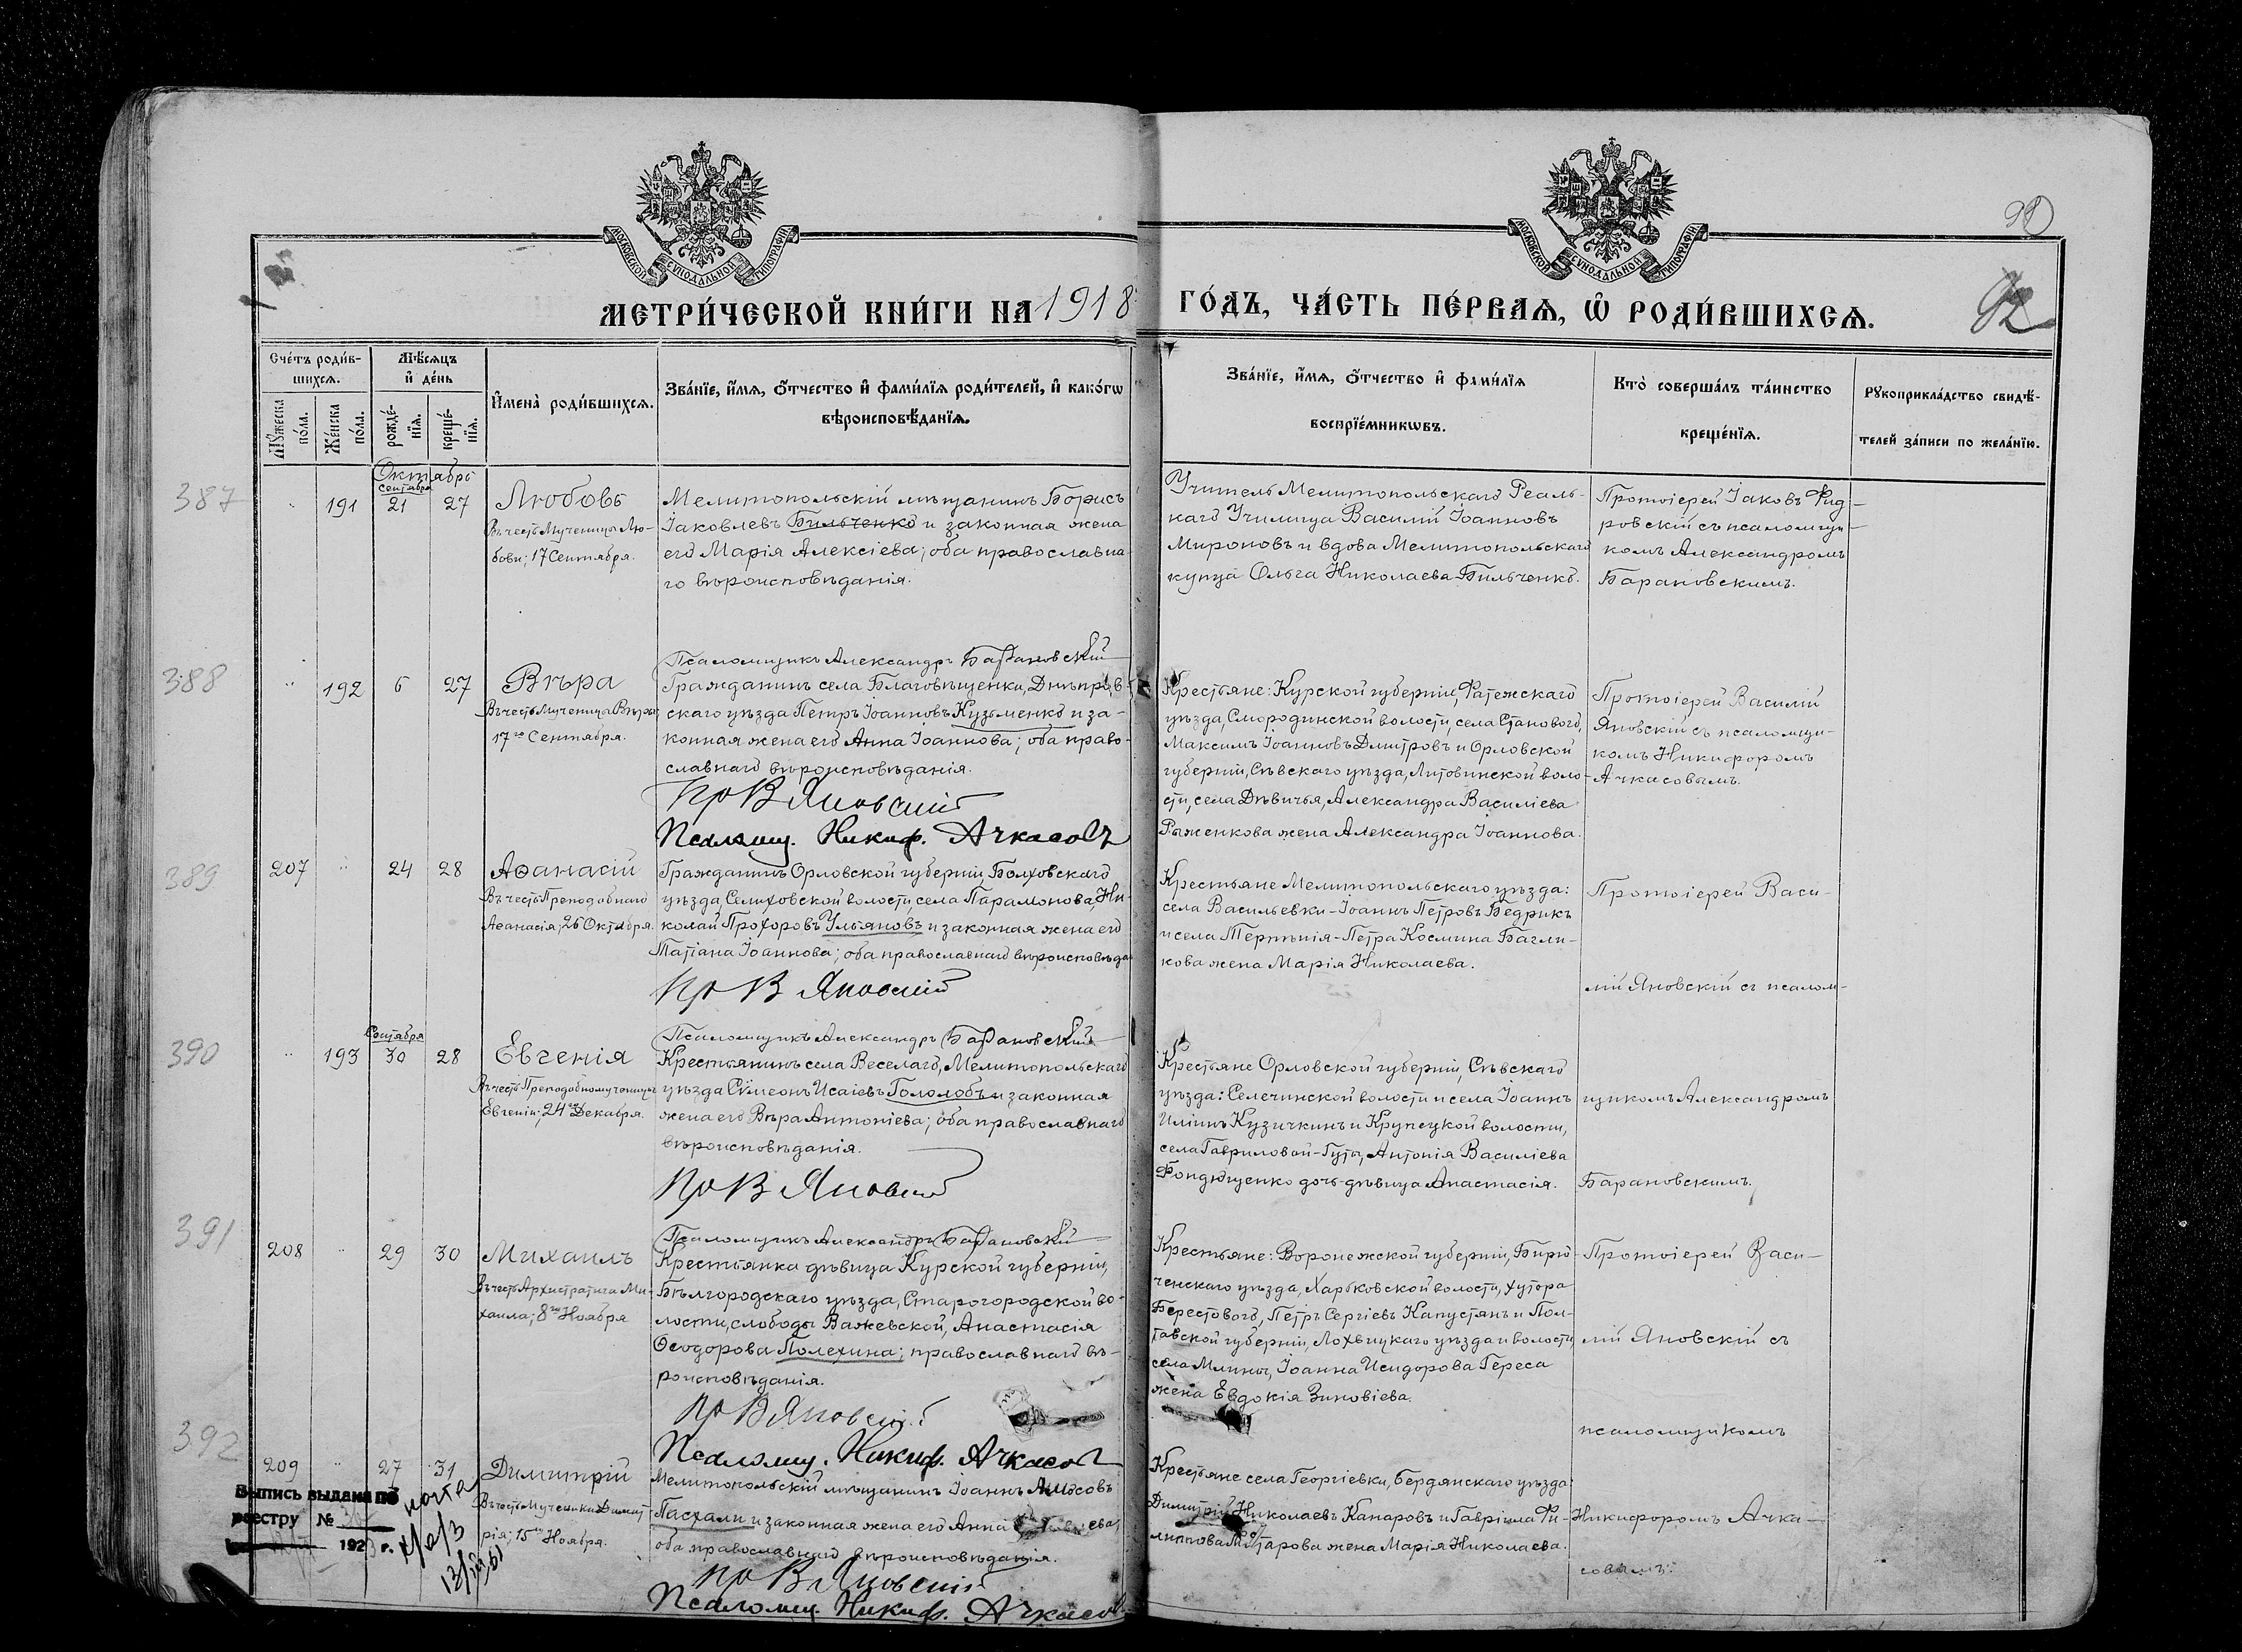 90
92
МОСКОВСКОЙ СѴНОДАЛЬНОЙ ТИПОГРАФІИ
МОСКОВСКОЙ СѴНОДАЛЬНОЙ ТИПОГРАФІИ
МЕТРИ́ЧЕСКОЙ КНИ́ГИ НА 1918 ГО́ДЪ, ЧА́СТЬ ПЕ́РВАѦ, Ѡ҆ РОДИ́ВШИХСѦ.
Сче́тъ роди́в-
шихсѧ.
Мꙋ́жеска
по́ла.
Же́нска
по́ла.
Мѣ́сѧцъ
и҆ де́нь
рожде́-
нїѧ.
креще́-
нїѧ.
И҆мена̀ роди́вшихсѧ.
Зва́нїе, и҆́мѧ, ѻ҆́тчество и҆ фами́лїѧ роди́телей, и҆ како́гѡ
вѣроисповѣ́данїѧ.
Зва́нїе, и҆́мѧ, ѻ҆́тчество и҆ фами́лїѧ
воспрїе́мникѡвъ.
Кто̀ соверша́лъ та́инство
креще́нїѧ.
Рꙋкоприкла́дство свидѣ́-
телей за́писи по жела́нїю.
387
191
Октябрь
Сентября
21
27
Любовь
Въ честь Мученицы Лю-
бови; 17 Сентября.
Мелитопольскій мѣщанинъ Борисъ
Іаковлевъ Бильченко и законная жена
его Марія Алексіева; оба православна
го вѣроисповѣданія.
Учитель Мелитопольскаго Реаль-
наго Училища Василій Іоанновъ
Мироновъ и вдова Мелитопольскаго
купца Ольга Николаева Бильченко.
Протоіерей Іаковъ
ровскій съ псаломщи
комъ Александромъ
Барановскимъ.
Псаломщикъ Александръ Барановскій
388
192
6
27
Вѣра
Въ честь Мученицы Вѣры;
17го Сентября.
Гражданинъ села Благовѣщенки, Днѣпров-
скаго уѣзда Петръ Іоанновъ Кузьменко и за-
конная жена его Анна Іоаннова; оба право-
славнаго вѣроисповѣданія.
Пр В Яновскій
Псаломщ. Никиф. Ачкасовъ
Крестьяне: Курской губерніи, Фатежскаго
уѣзда, Смородинской волости, села Становаго,
Максимъ Іоанновъ Дмитровъ и Орловской
губерніи, Сѣвскаго уѣзда, Литовинской воло-
сти, села Дѣвичья, Александра Василіева
Рыженкова жена Александра Іоаннова.
Протоіерей Василій
Яновскій съ псаломщи-
комъ Никифоромъ
Ачкасовымъ.
389
207
24
28
Аѳанасій
Въ честь Преподобнаго
Аѳанасія; 26 Октября.
Гражданинъ Орловской губерніи, Болховскаго
уѣзда, Селиховской волости, села Парамонова, Ни-
колай Прохоровъ Ульяновъ и законная жена его
Татіана Іоаннова; оба православнаго вѣроисповѣда
Пр В Яновскій
Псаломщикъ Александръ Барановскій
Крестьяне Мелитопольскаго уѣзда:
села Васильевки - Іоаннъ Петровъ Бедрикъ
и села Терпѣнія - Петра Космина Багли-
кова жена Марія Николаева.
Протоіерей Васи-
лій Яновскій съ псалом-
390
193
Сентября
30
28
Евгенія
Въ честь Преподобномученицы
Евгеніи; 24го Декабря.
Крестьянинъ села Веселаго, Мелитопольскаго
уѣзда Сѵмеонъ Исаіевъ Гололобъ и законная
жена его Вѣра Антоніева; оба православнаго
вѣроисповѣданія.
Пр В Яновскій
Псаломщикъ Александръ Барановскій
Крестьяне Орловской губерніи, Сѣвскаго
уѣзда: Селечинской волости и села Іоаннъ
Иліинъ Кузичкинъ и Крупецкой волости,
села Гавриловой-Гуты, Антонія Василіева
Фондющенко дочь-дѣвица Анастасія.
щикомъ Александромъ
Барановскимъ.
391
208
29
30
Михаилъ
Въ честь Архистратига Ми-
хаила; 8го Ноября
Крестьянка дѣвица Курской губерніи,
Бѣлгородскаго уѣзда, Старогородской во-
лости, слободы Важевской, Анастасія
Ѳеодорова Полехина; православнаго вѣ-
роисповѣданія.
Пр В Яновскій
Псаломщ. Никиф. Ачкасовъ
Крестьяне: Воронежской губерніи, Бирю-
ченскаго уѣзда, Харьковской волости, хутора
Берестоваго, Петръ Сергіевъ Капустянъ и Пол-
тавской губерніи, Лохвицкаго уѣзда и волости,
села Млины, Іоанна Исидорова Гереса
жена Евдокія Зиновіева.
Протоіерей Васи-
лій Яновскій съ
псаломщикомъ
392
209
27
31
Димитрій
Въ честь Мученика Димит
рія; 15го Ноября.
Мелитопольскій мѣщанинъ Іоаннъ
Пасхали и законная жена его Анна
оба православнаго вѣроисповѣданія.
Пр В Яновскій
Псаломщ. Никиф. Ачкасовъ
Крестьяне села Георгіевки, Бердянскаго уѣзда:
Димитрій Николаевъ Капаровъ и Гавріила Фи-
липпова жена Марія Николаева.
Никифоромъ Ачка-
совымъ.
Выпись выдана по
реестру №
192 г.